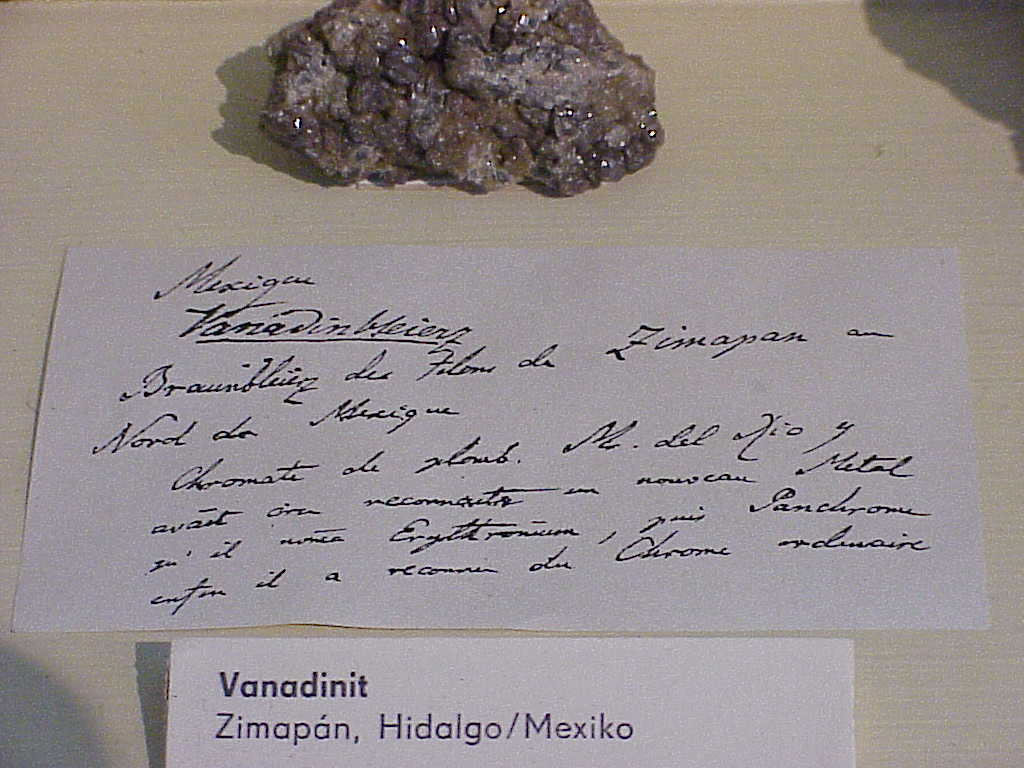 Mexique
Vanadinbleierz
Braunbleierz des Filons de Zimapan au
Nord du Mexique
Chromate de plomb. M. del Rio y
avait cru reconnaitre un nouveau Metal
qu'il noma Erythronium, puis Panchrome
enfin il a reconnu du Chrome ordinaire
Vanadinit
Zimapán, Hidalgo/Mexiko